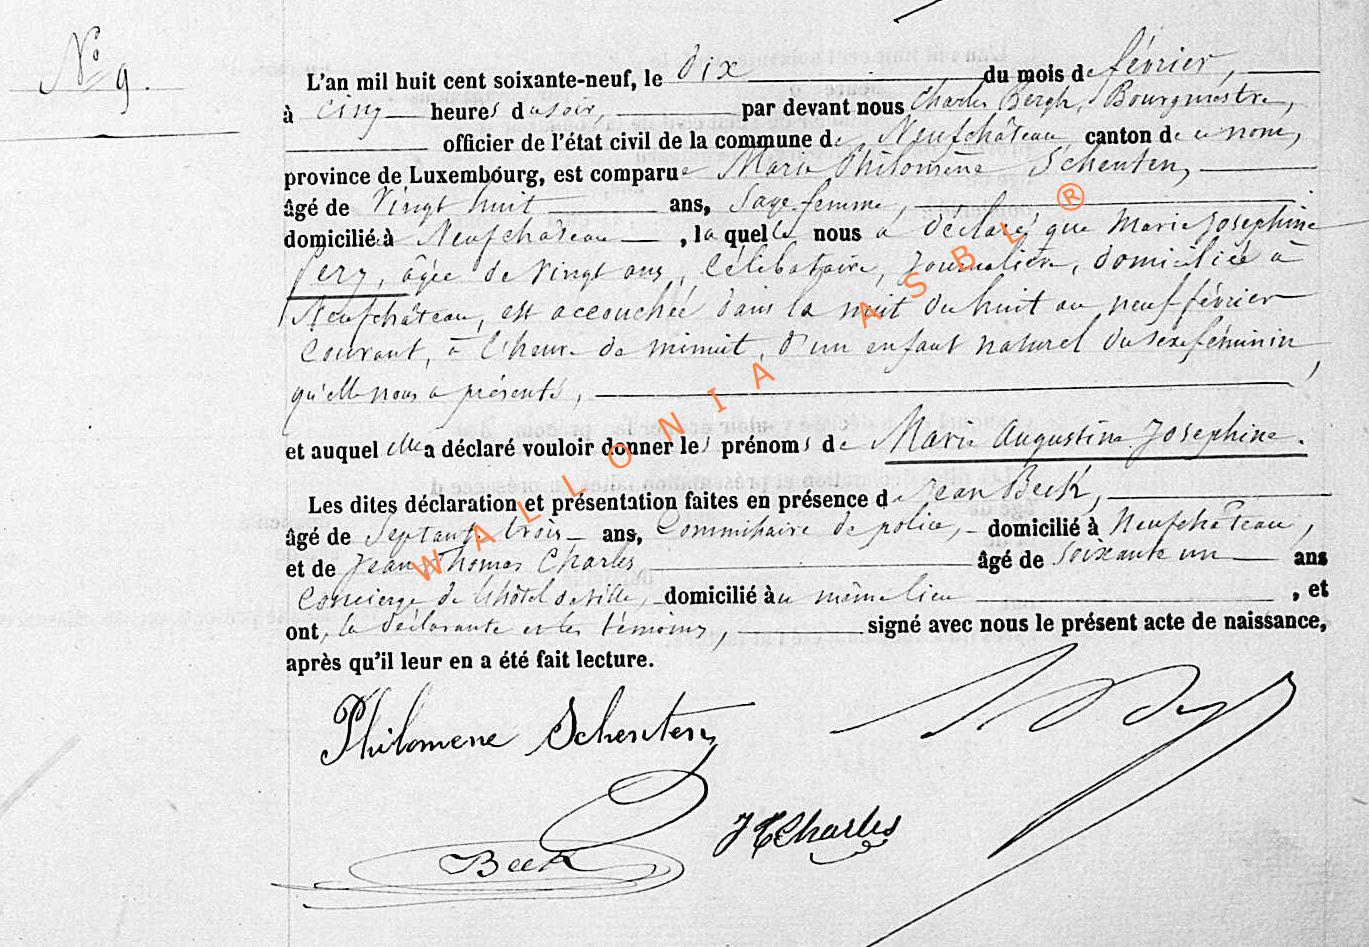 N° 9.
L'an mil huit cent soixante-neuf, le dix du mois de février,
à cinq heures du soir, par devant nous Charles Bergh, Bourgmestre,
officier de l'état civil de la commune de Neufchâteau, canton de ce nom,
province de Luxembourg, est comparue Marie Philomène Schenten,
âgé de Vingt huit ans, Sage femme,
domicilié à Neufchâteau, laquelle nous a déclaré, que Marie Josephine
âgée de vingt ans, Célibataire, Journalière, domiciliée à
Neufchâteau, est accouchée dans la nuit du huit au neuf février
Courant, à l'heure de minuit, d'un enfant naturel du sexe féminin
qu'elle nous a présenté,
et auquel elle a déclaré vouloir donner les prénoms de Marie Augustine Josephine.
Les dites déclaration et présentation faites en présence de Jean Beck,
âgé de Septante trois ans, Commissaire de police, domicilié à Neufchâteau,
et de Jean Thomas Charles âgé de soixante un ans
Concierge de l'hôtel de ville, domicilié au même lieu, et
ont, la déclarante et les témoins, signé avec nous le présent acte de naissance,
après qu'il leur en a été fait lecture.
Philomene Schenten
JTCharles
Beck
WALLONIA ASBL ®